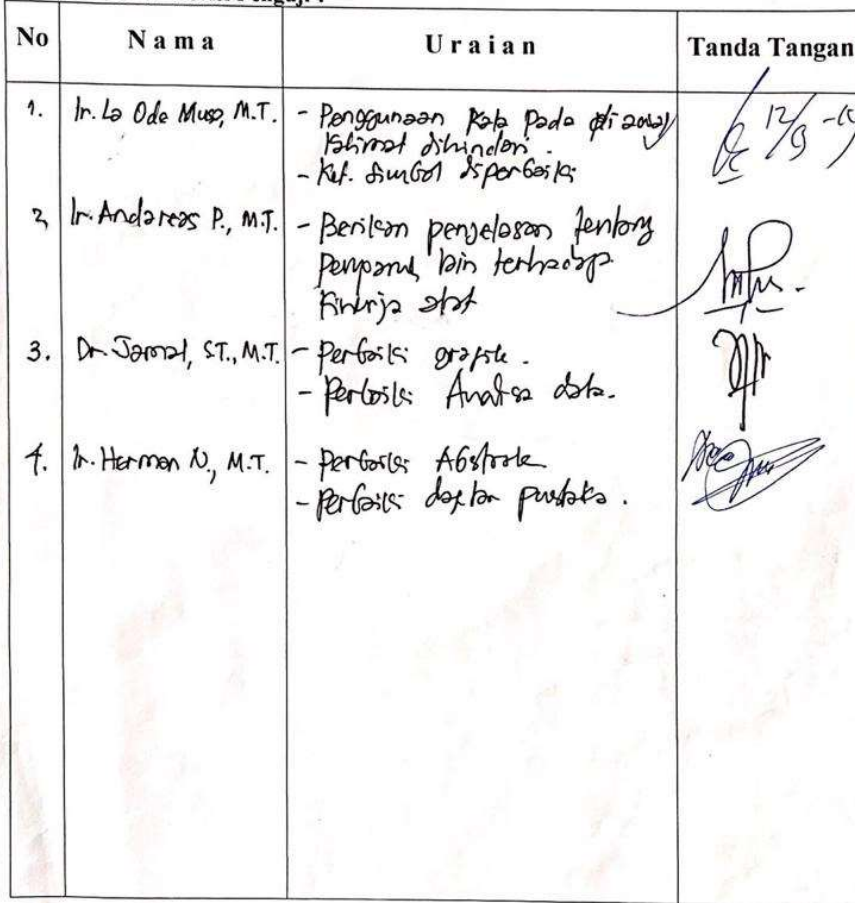 No Nama Uraian Tanda Tangan
1. Ir. La Ode Musa, M.T. - Penggunaan Kata Pada di awal
kalimat dihindari.
- Ket. Simbol diperbaiki
12/9 -
2, Ir. Andareas P., M.T. - Berikan penjelasan tentang
terhadap
Kinerja alat
3. Dr. Jamal, ST., M.T. - Perbaiki grafik.
- Perbaiki Analisa data.
4. Ir. Herman N., M.T. - Perbaiki Abstrak
- Perbaiki daftar pustaka.